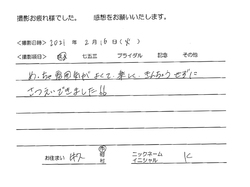 撮影お疲れ様でした。 感想をお願いいたします。
＜撮影日時＞ 2021 年 2 月 16 日 (火)
＜撮影項目＞ 成人 七五三 ブライダル 記念 その他
めっちゃ雰囲気がよくて、楽しく、きんちょうせずに
さつえいできました!!
お住まい 市 ニックネーム イニシャル K